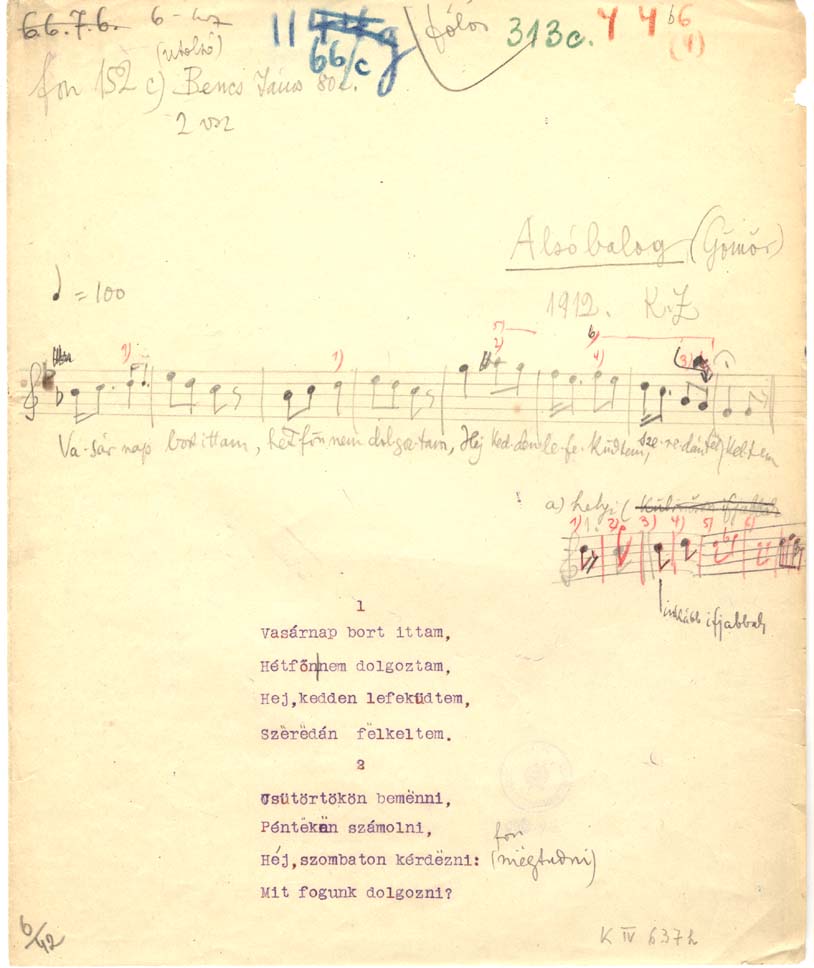 6.6.7.6.
66/c
313c. 4 4 b6
(1)
(utolsó)
fon 152 c) Bencs János 80é.
2 vsz
Alsóbalog (Gömör)
= 100
1912. K.Z
1) 1) 5) 2) 6) 4) 3)
Va-sár nap bort ittam, hétfőn nem dolgoz-tam, Hej ked-den le-fe-küdtem, sze-re-dán fel-keltem
a) helyi (
1) 2) 3) 4) 5) 6)
inkább ifjabbak
1
Vasárnap bort ittam,
Hétfőn nem dolgoztam,
Hej,kedden lefeküdtem,
Szërëdán fëlkeltem.
2
Csütörtökön bemënni,
Péntëkën számolni,
Héj,szombaton kérdëzni: fon (mëgtudni)
Mit fogunk dolgozni?
6/42
K IV 637h